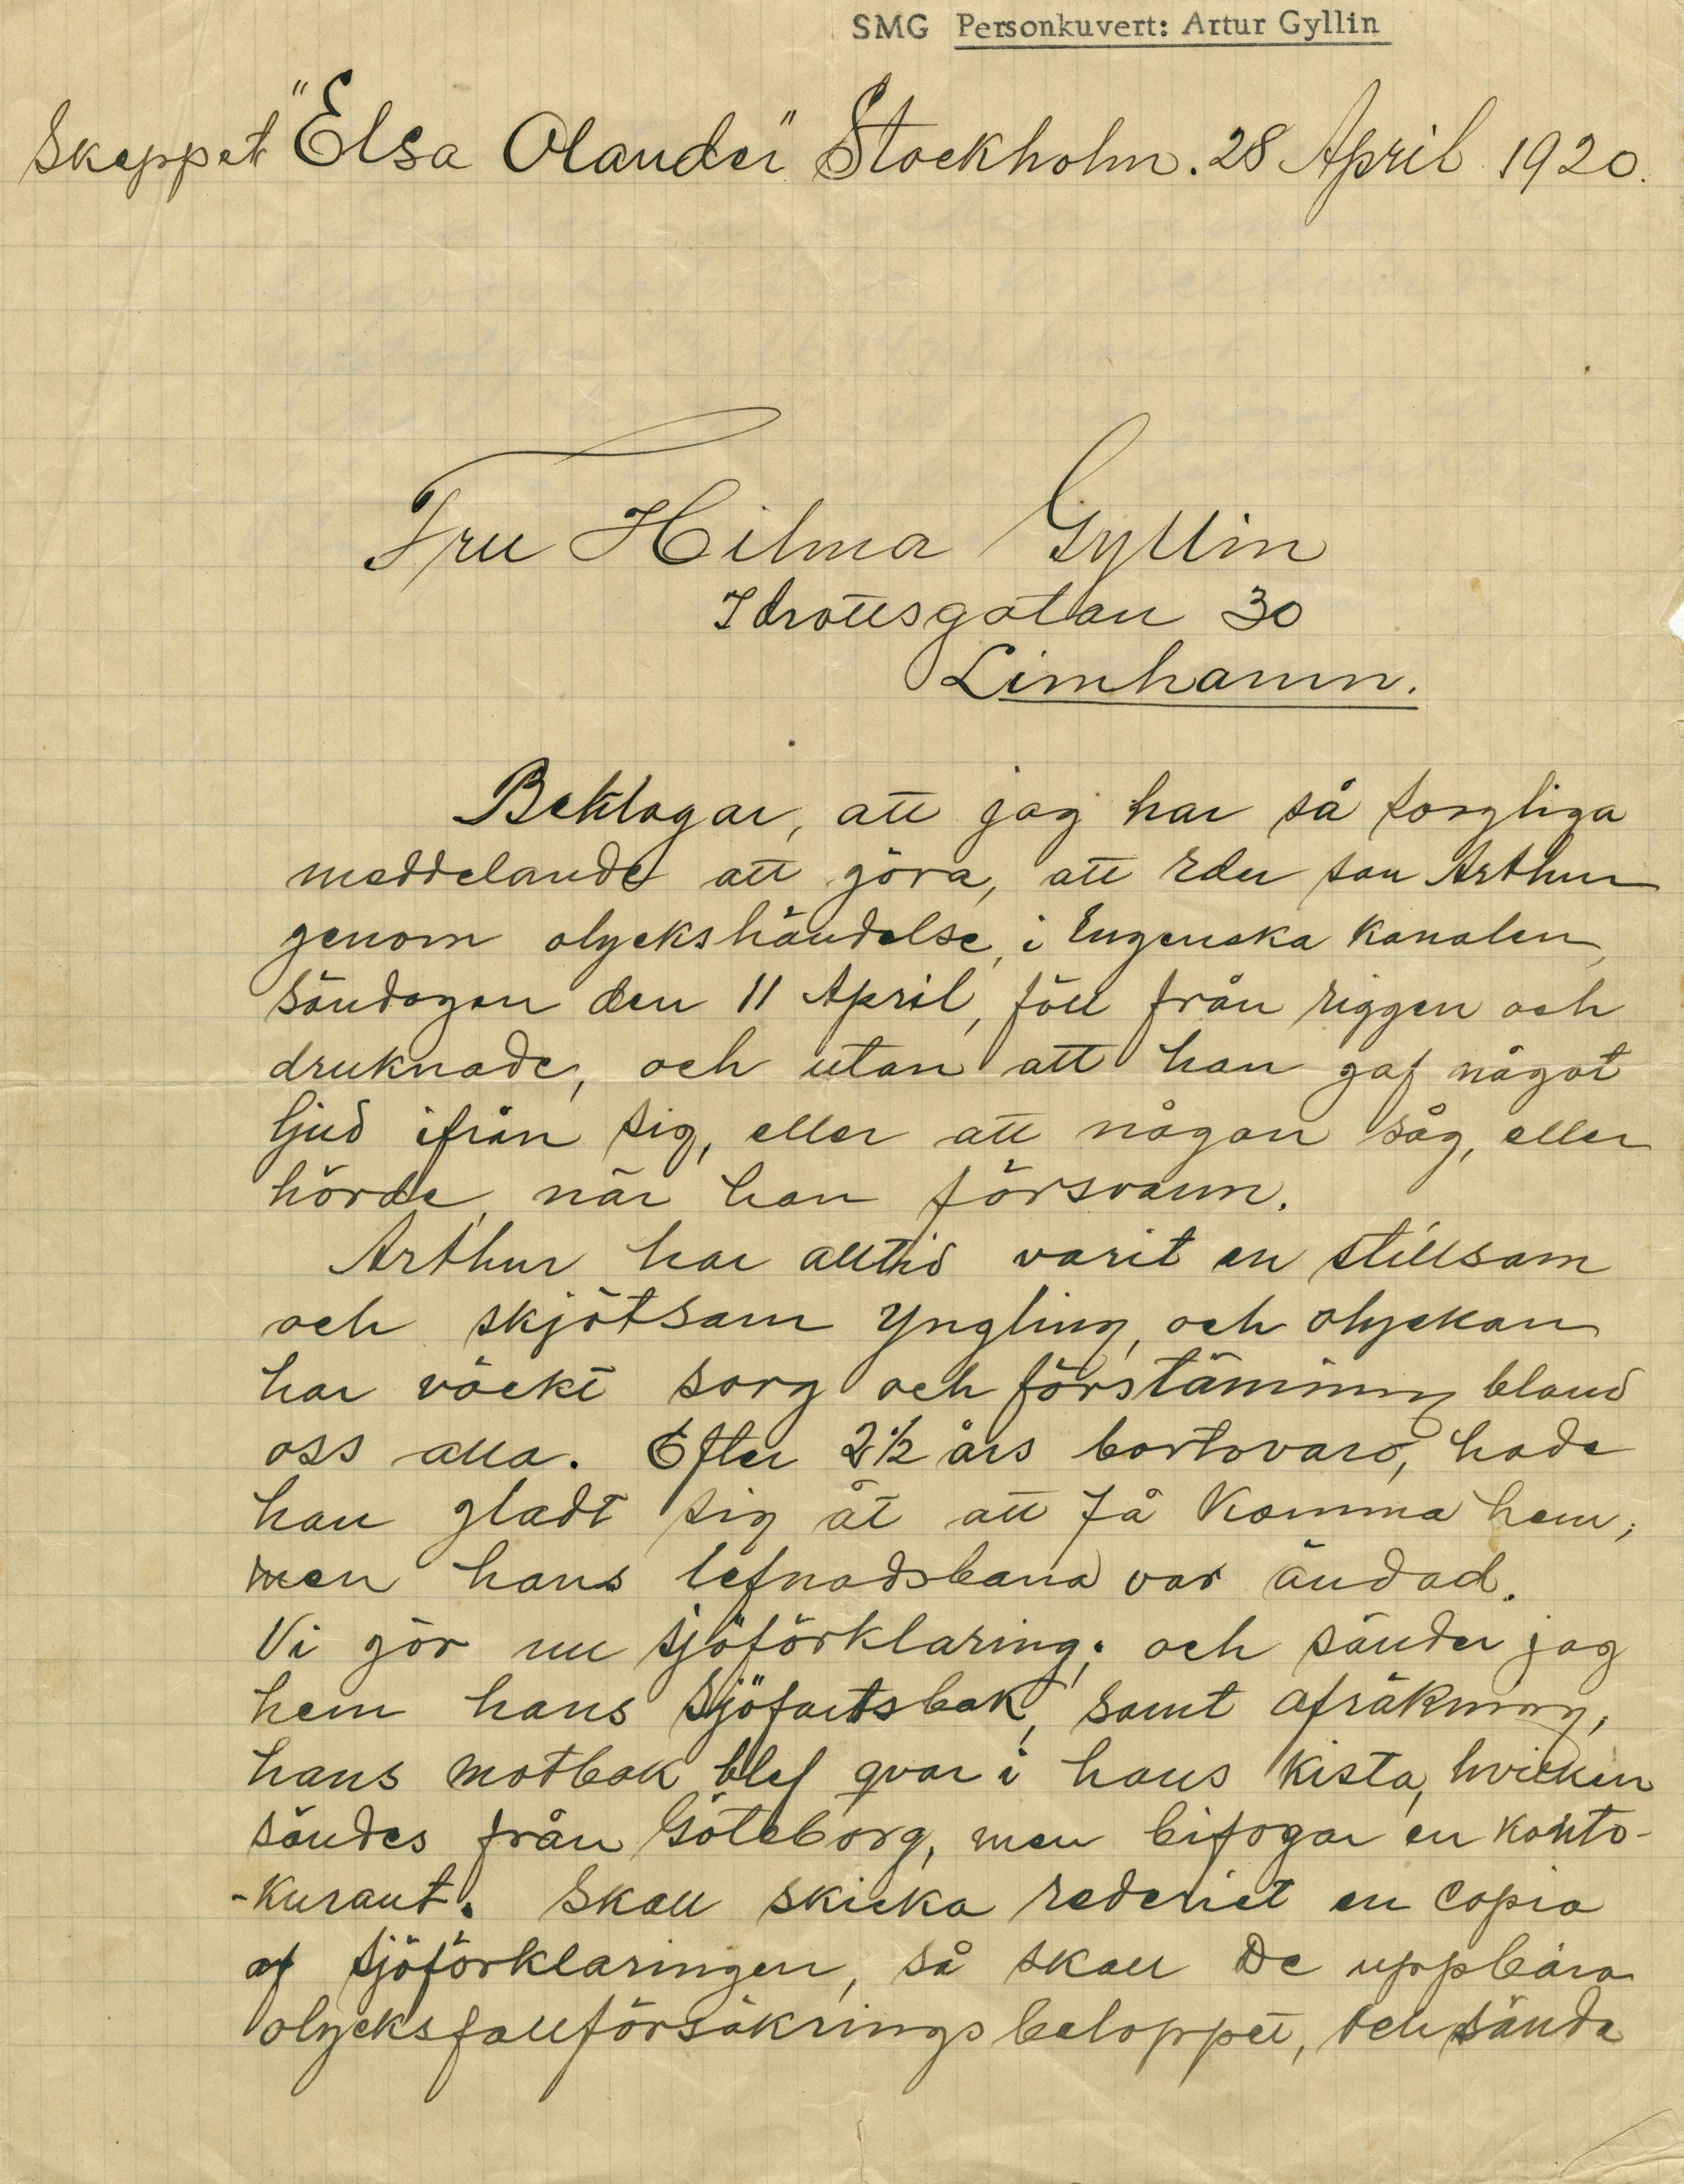 SMG Personkuvert: Artur Gyllin
Skeppet "Elsa Olander" Stockholm. 28 April 1920.
Fru Hilma Gyllin
Idrottsgatan 30
Limhamn.
Beklagar, att jag har så sorgliga
meddelande att göra, att Eder son Arthur
genom olyckshändelse, i Engenska Kanalen,
Söndagen den 11 April, föll från riggen och
druknade, och utan att han gaf något
ljud ifrån sig, eller att någon såg, eller
hörde, när han försvann.
Arthur har alltid varit en stillsam
och skjötsam Yngling, och olyckan
har väckt sorg och förstämning bland
oss alla. Efter 2½ års bortovaro, hade
han gladt sig åt att få Komma hem;
men hans lefnadsbana var ändad.
Vi gör nu sjöförklaring; och sänder jag
hem hans Sjöfartsbok, samt afräkning,
hans motbok blef qvar i hans Kista, hvicken
sändes från Göteborg, men bifogar en Konto-
-Kurant. Skall skicka rederiet en Copia
af Sjöförklaringen, så skall De uppbära
olycksfallförsäkringsbeloppet, och sända